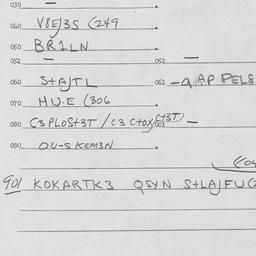 030 —
040 V8EJ3S (249
050 BR1LN
051 — 052
060 S+AJTL 061 —a AP PELS
070 HU·E (306
080 C3PLOS+3T / C3 C+OX —
090 OU-S KEM3N
901 KOKARTK3 QSYN S+LAJFUG